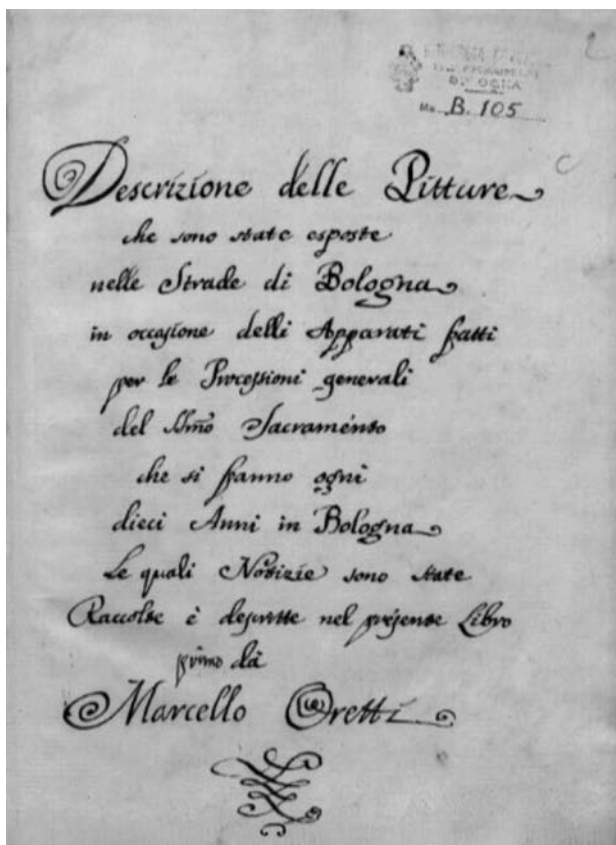 BOLOGNA
Ms. B. 105
Descrizione delle Pitture
che sono state esposte
nelle Strade di Bologna
in occasione delli Apparati fatti
per le Processioni generali
del SSmo Sacramento
che si fanno ogni
dieci Anni in Bologna
Le quali Notizie sono state
Raccolte è descritte nel presente Libro
primo da
Marcello Oretti